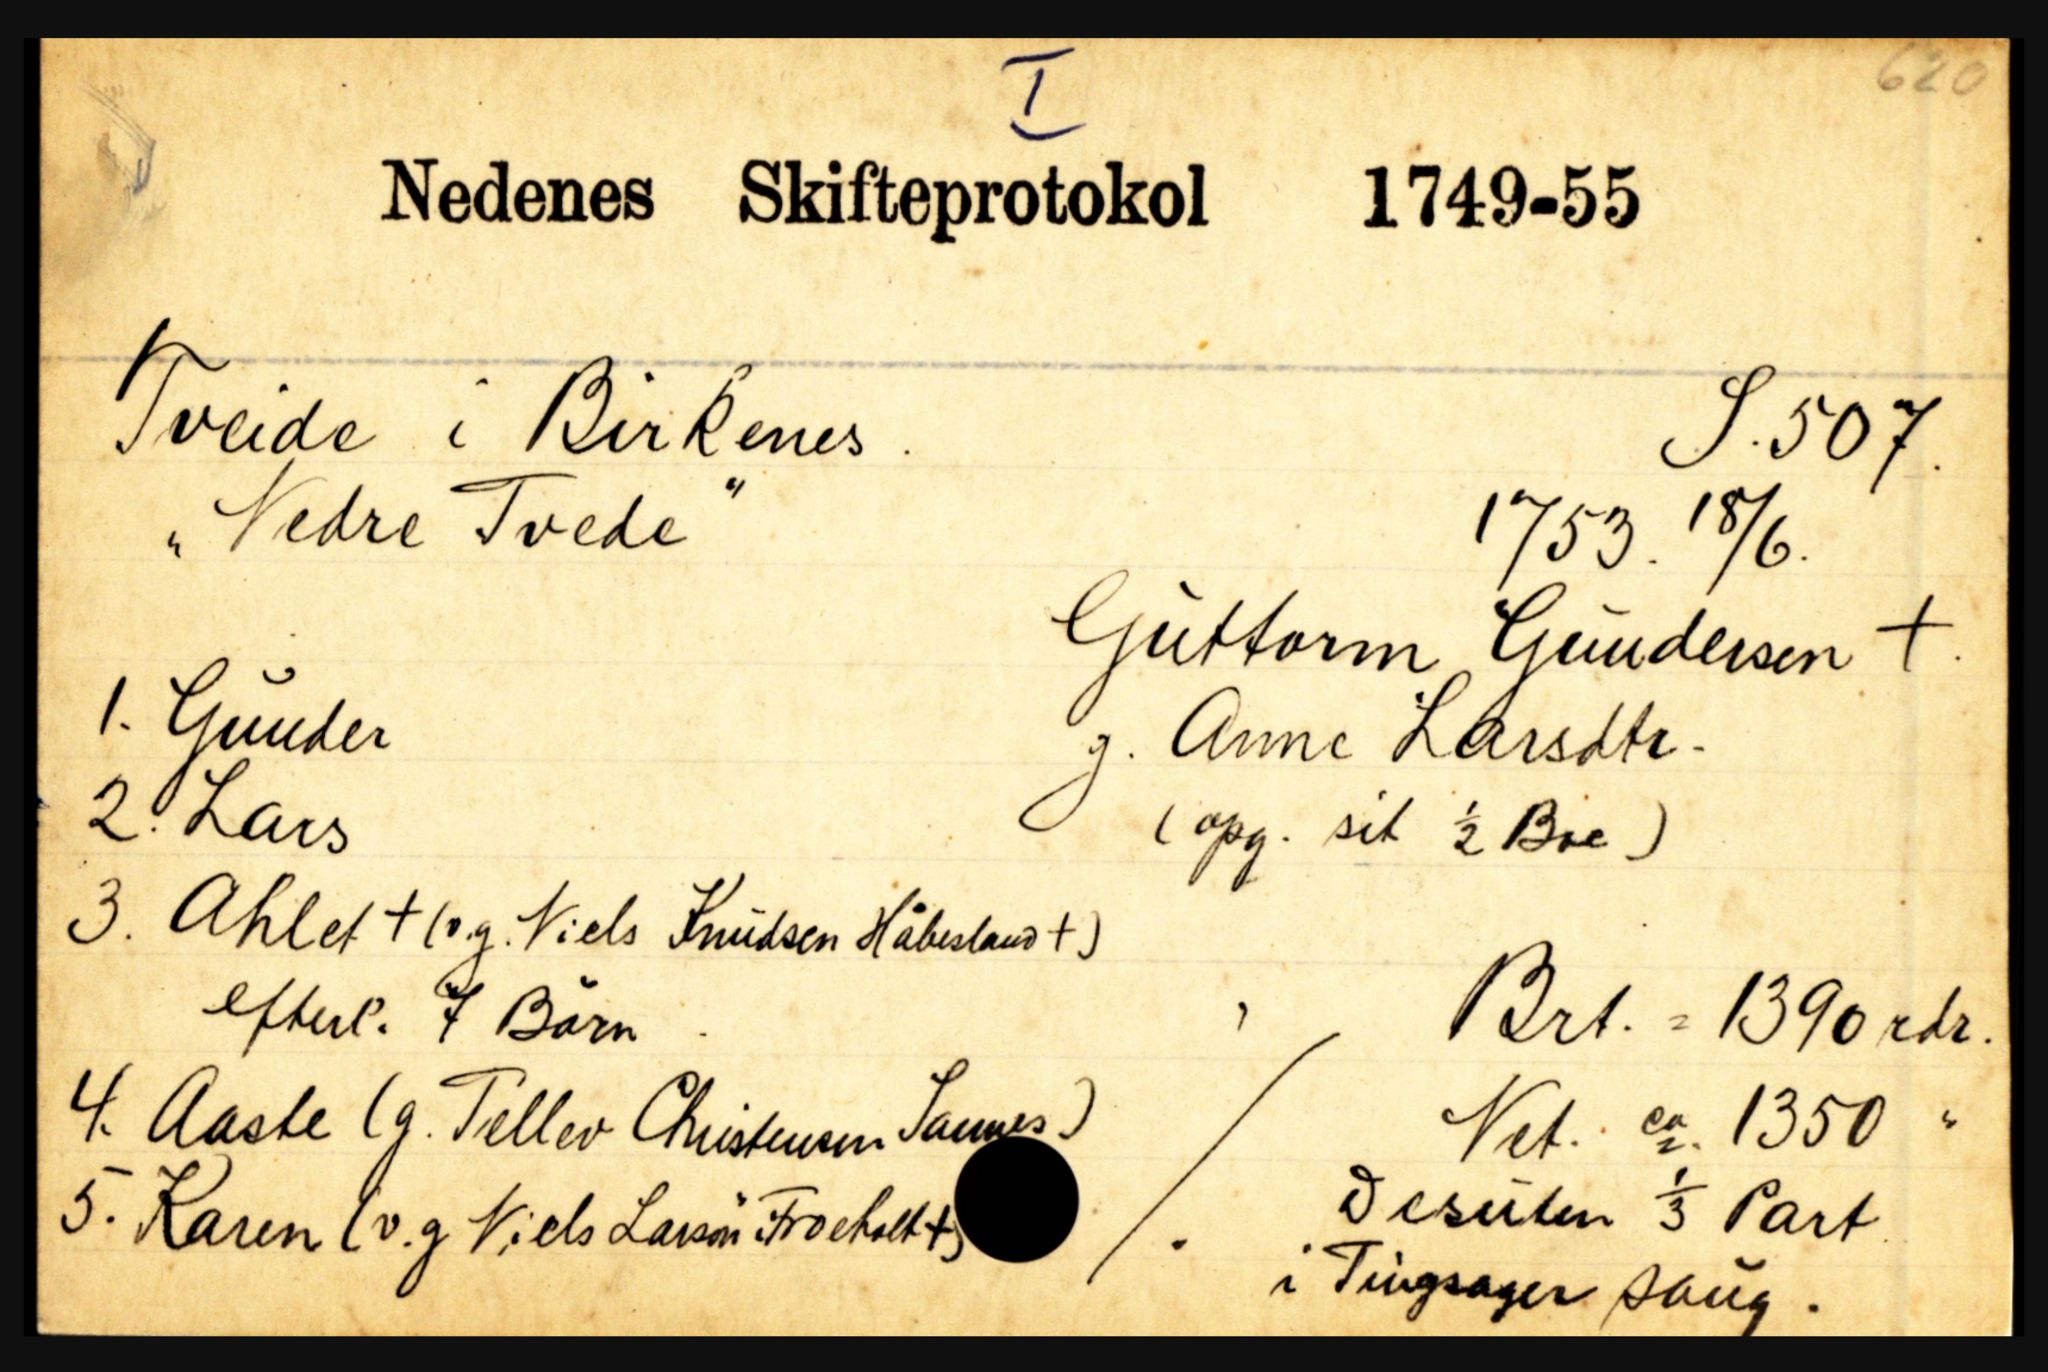 I
620
Nedenes Skifteprotokol 1749-55
Tveide i Birkenes.
S. 507.
„Nedre Tvede"
1753. 18/6.
Guttorm Gundersen †.
1. Gunder
g. Anne Larsdtr.
2. Lars
(opg. sit 1/2 Boe)
3. Ahlet † (v.g. Niels Knudsen Håbesland †)
efterl. 7 Børn.
Brt. = 1390 rdr.
4. Aaste (g. Tellev Christensen Sannes)
Net. ca. 1350 "
5. Karen (v.g Niels Larsøn Froeholt †)
Desuten 1/3 Part
i Tingsager saug.